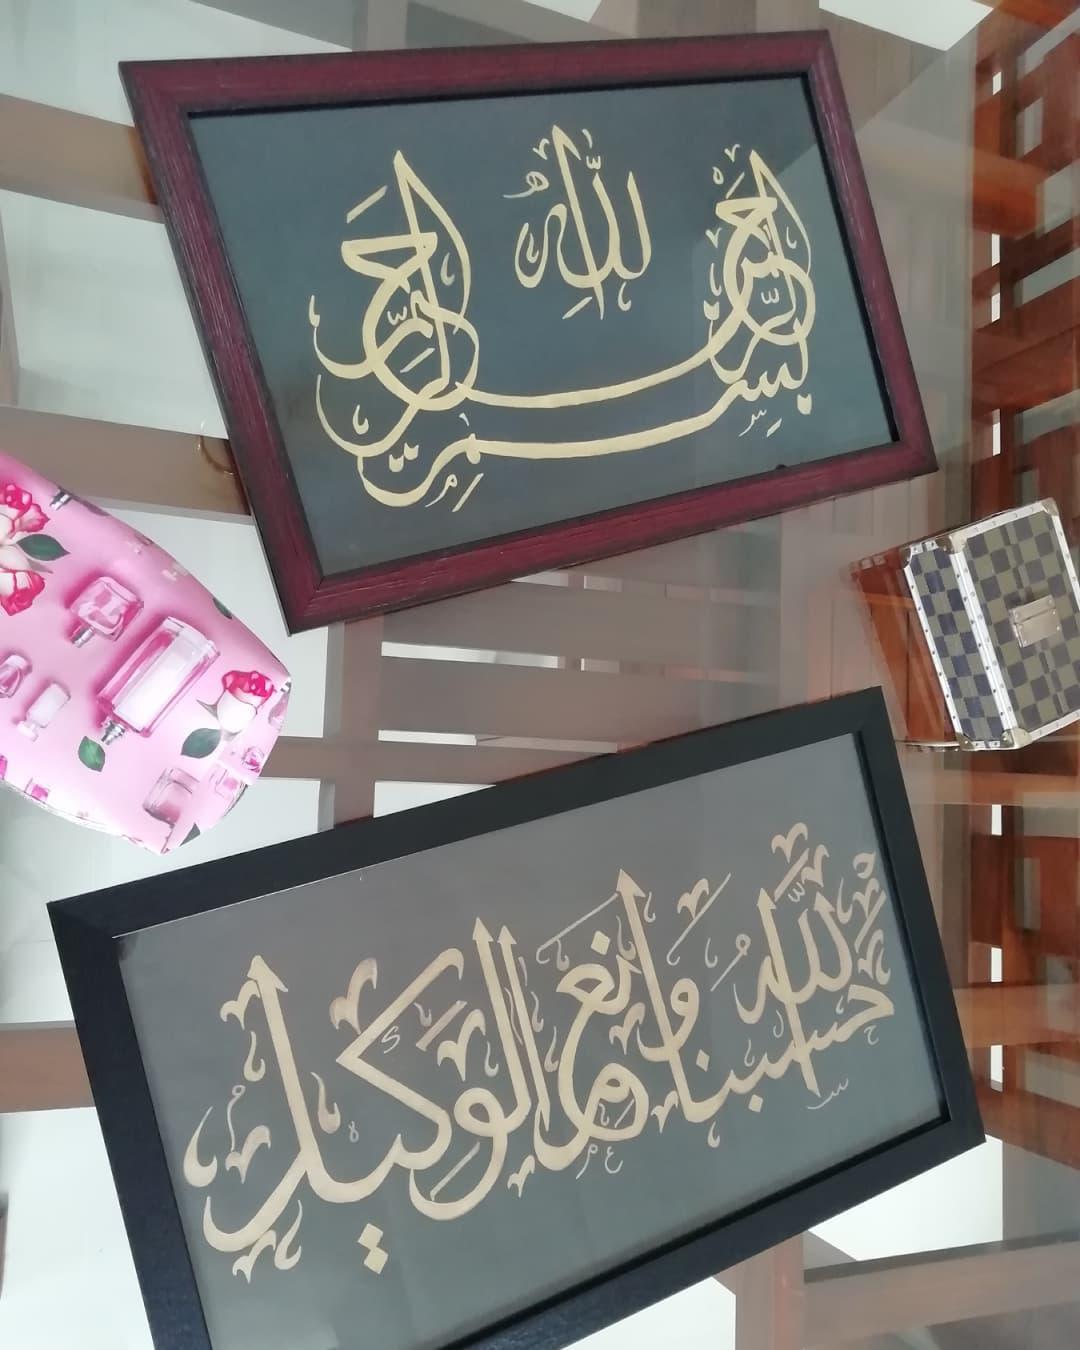 بِسْمِ اللهِ الرَّحْمٰنِ الرَّحِيْمِ
حَسْبُنَا اللّٰهُ وَنِعْمَ الْوَكِيْلُ